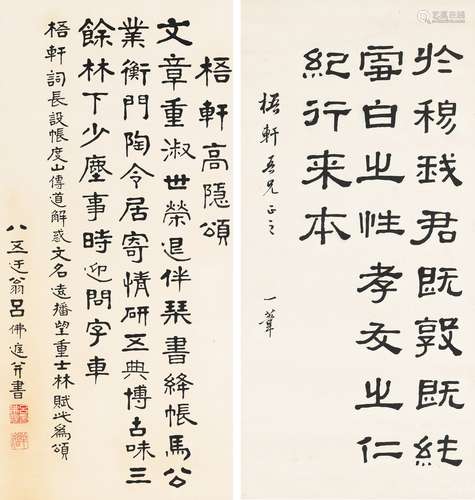 於穆我君既敦既純
雪白之性孝友之仁
紀行来本
梧軒吾兄正之
一葦
梧軒高隱頌
文章重淑世榮退伴琹書絳帳馬公
業衡門陶令居寄情研五典博古味三
餘林下少塵事時迎問字車
梧軒詞長設帳度山傳道解惑文名遠播望重士林賦此為頌
八五迂翁呂佛庭并書